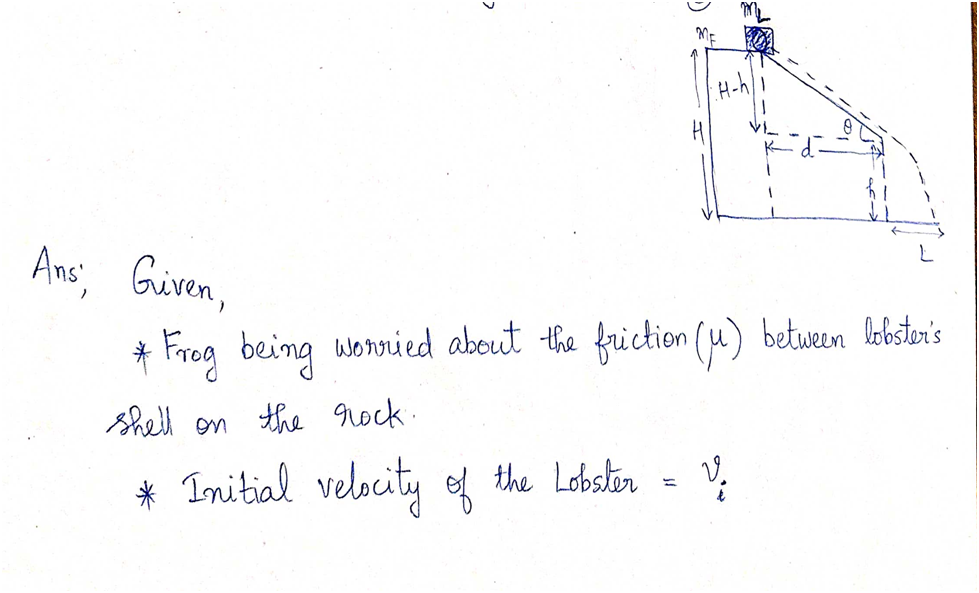 m_L
m_F
H-h
H
θ
d
h
L
Ans; Given,
* Frog being worried about the friction (μ) between lobster's
shell on the rock.
* Initial velocity of the Lobster = v_i